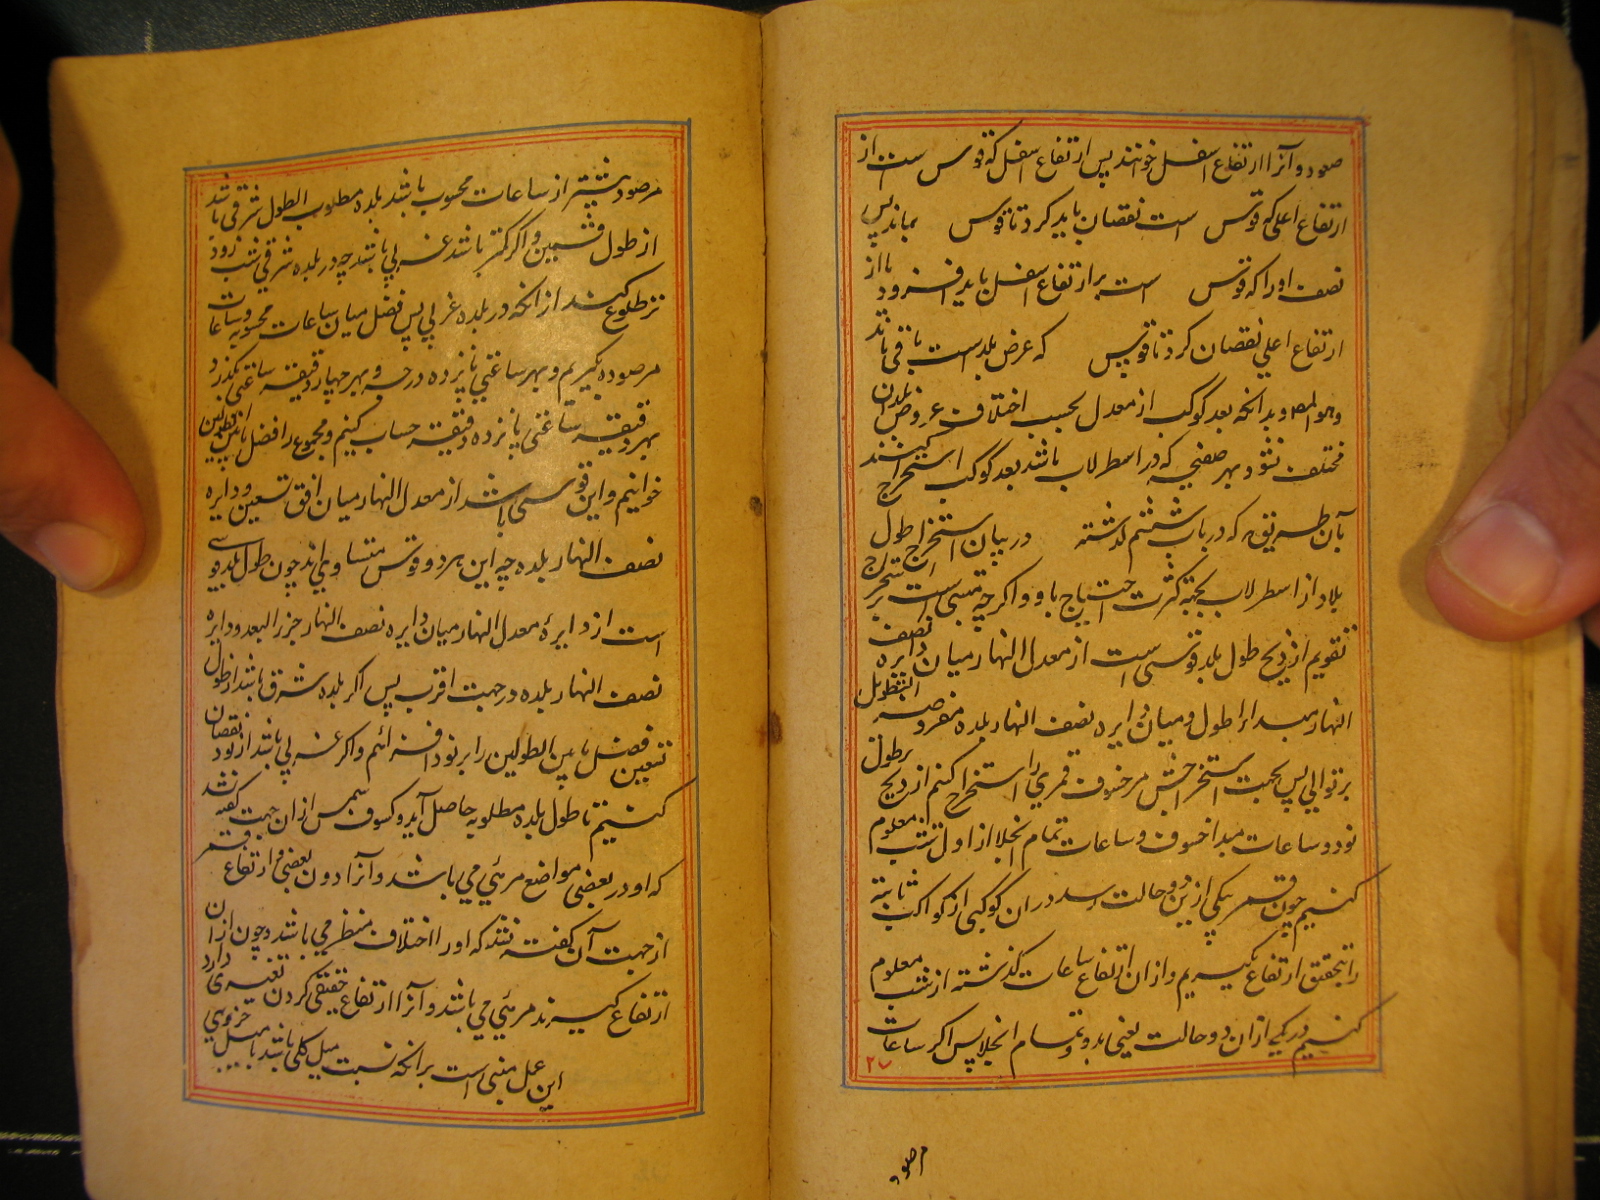 صعود و آنرا ارتفاع اسفل خوانند پس ارتفاع اسفل که قوس است از
ارتفاع اعلی که قوس است نقصان باید کرد تا قوس بماند پس
نصف او را که قوس است بر ارتفاع اسفل باید افزود یا از
ارتفاع اعلی نقصان کرد تا قوس که عرض بلد است باقی ماند
وهو المط و بدانکه بعد کوکب از معدل بحسب اختلاف عروض بلدان
مختلف نشود بهر صفیحه که در اسطرلاب باشد بعد کوکب استخراج کنند
بآن طریق که در باب ششم گذشته در بیان استخراج طول
بلاد از اسطرلاب بجهة کثرت احتیاج باو و اگرچه مبنی است بر استخراج
تقویم از زیج طول بلد قوسی است از معدل النهار میان دایره نصف
النهار مبدا طول و میان دایره نصف النهار بلده مفروضه
بر توالی پس بجهت استخراجش مر خسوف قمری را استخراج کنم از زیج بر طول
نود و ساعات مبدا خسوف و ساعات تمام انجلا از اول شب معلوم
کنیم چون قمر بیکی از این دو حالت رسد در آن کوکبی از کواکب ثابته
را بتحقیق ارتفاع بگیریم و از ان ارتفاع ساعات گذشته از شب معلوم
کنیم در یکی از ان دو حالت یعنی بدو و تمام انجلا پس اگر ساعات
۲۷
مرصود
مرصود بیشتر از ساعات محسوب باشد بلده مطلوب الطول شرقی باشد
از طول تسعین و اگر کمتر باشد غربی باشد چه در بلده شرقی شب زود
تر طلوع کند از انکه در بلده غربی پس فضل میان ساعات محسوبه و ساعات
مرصوده بگیریم و بهر ساعتی پانزده درجه و بهر چهار دقیقه ساعتی یکدرجه و
بهر دقیقه ساعتی پانزده دقیقه حساب کنیم و مجموع را فضل ما بین الطولین
خوانیم و این قوسی باشد از معدل النهار میان افق تسعین و دایره
نصف النهار بلده چه این هر دو قوس متساوی اند چون طول بلد قوسی
است از دایره معدل النهار میان دایره نصف النهار جزایر البعد و دایره
نصف النهار بلده در جهت اقرب پس اگر بلده شرقی باشد از طول
تسعین فضل ما بین الطولین را بر نود افزائیم و اگر غربی باشد از نود نقصان
کنیم تا طول بلده مطلوبه حاصل آید و کسوف شمس از ان جهت گفته نشد
که او در بعضی مواضع مرئی می باشد و آنرا دون بعضی و ارتفاع قمر
از جهت آن گفته نشد که او را اختلاف منظر می باشد و چون از ان
ارتفاع گیرند مرئی می باشد و آنرا ارتفاع حقیقی کردن تعسری دارد
این عمل مبنی است بر انکه نسبت میل کلی باشد با میل جزوی